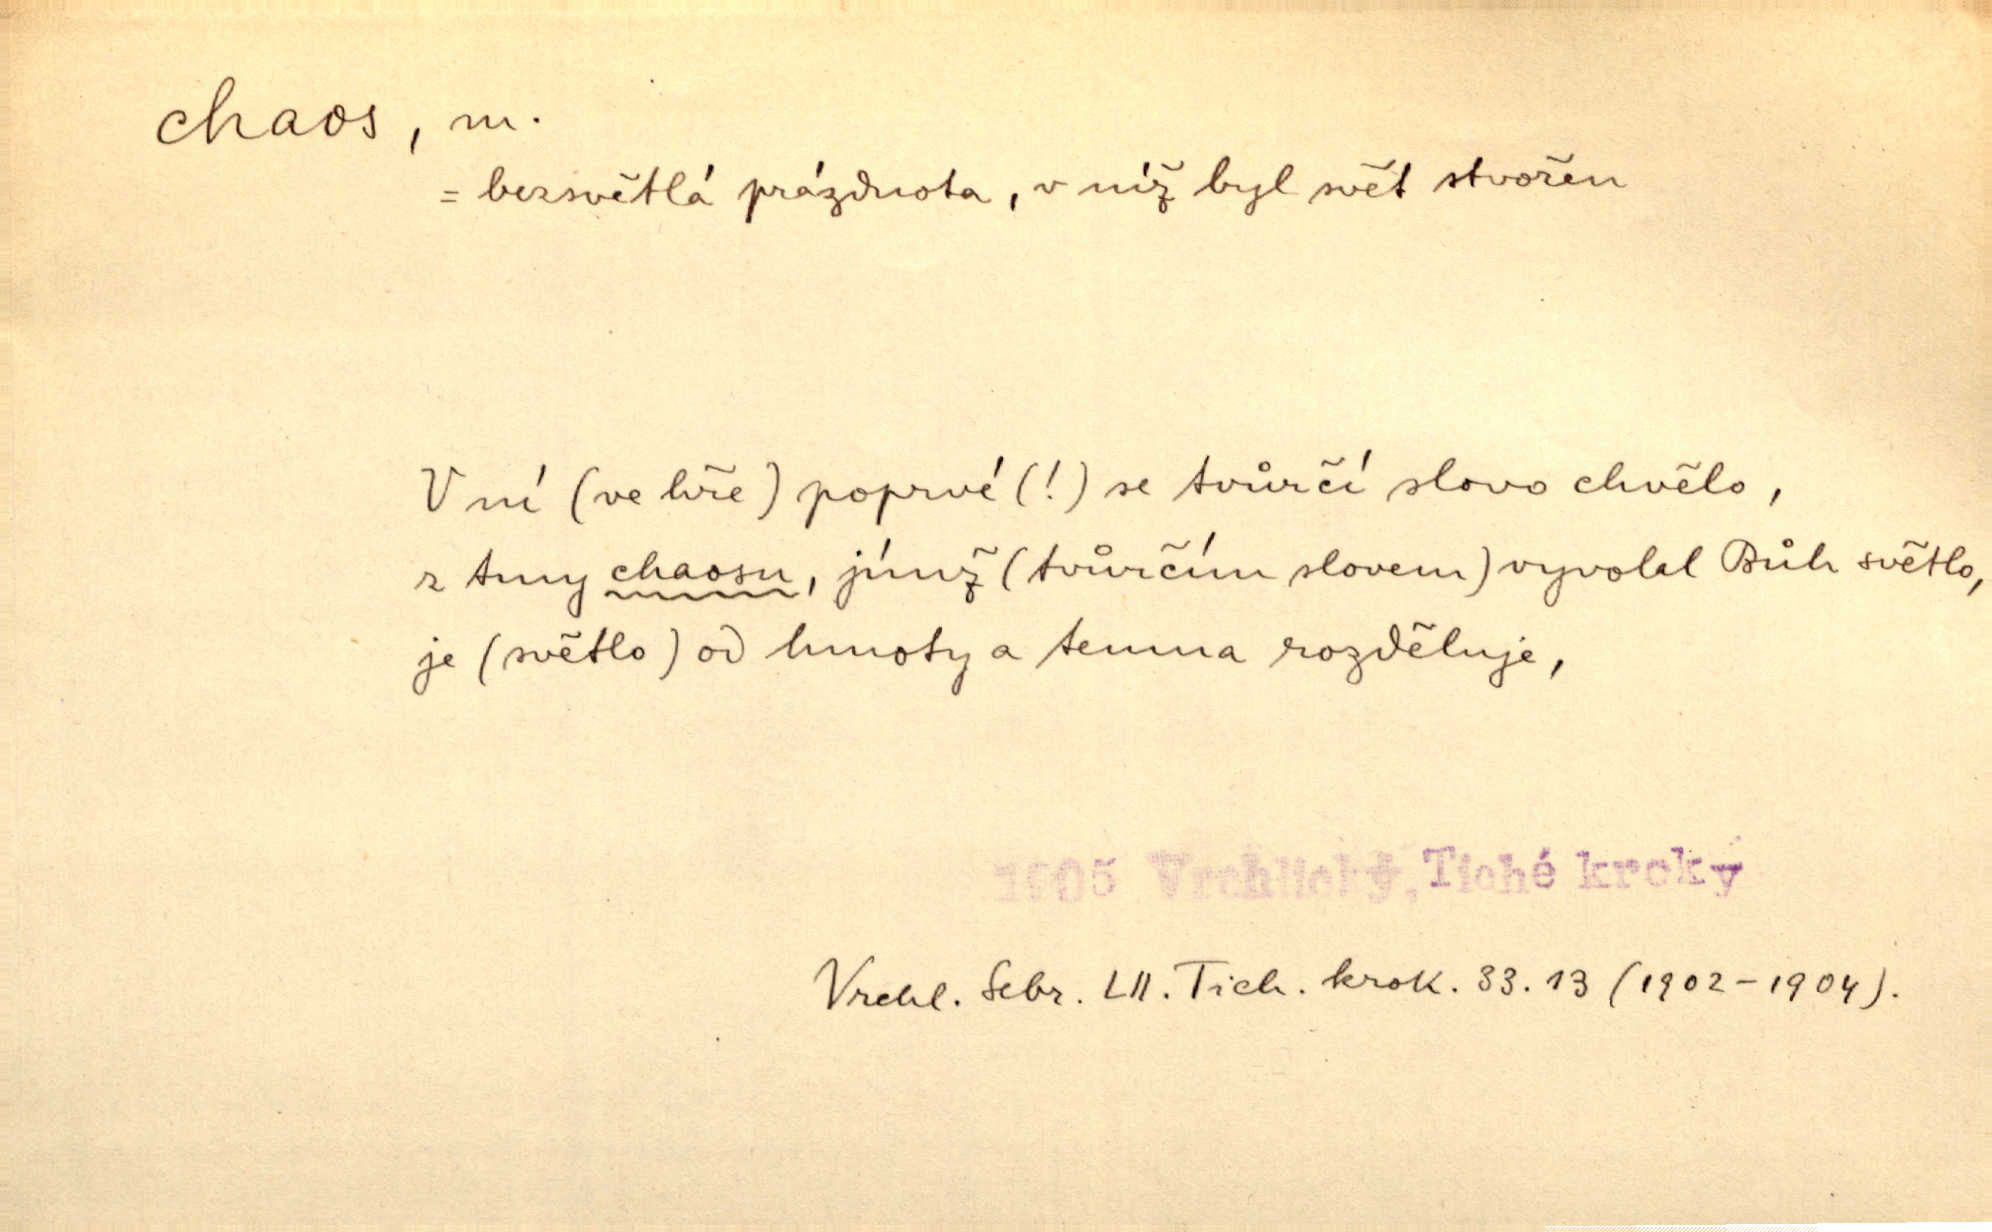 chaos, m.
= bezsvětlá prázdnota, v níž byl svět stvořen
V ní (ve hře) poprvé (!) se tvůrčí slovo chvělo,
z tmy chaosu, jímž (tvůrčím slovem) vyvolal Bůh světlo,
je (světlo) od hmoty a temna rozděluje,
1905 Vrchlický, Tiché kroky
Vrchl. Sebr. LII. Tich. krok. 33. 13 (1902-1904).